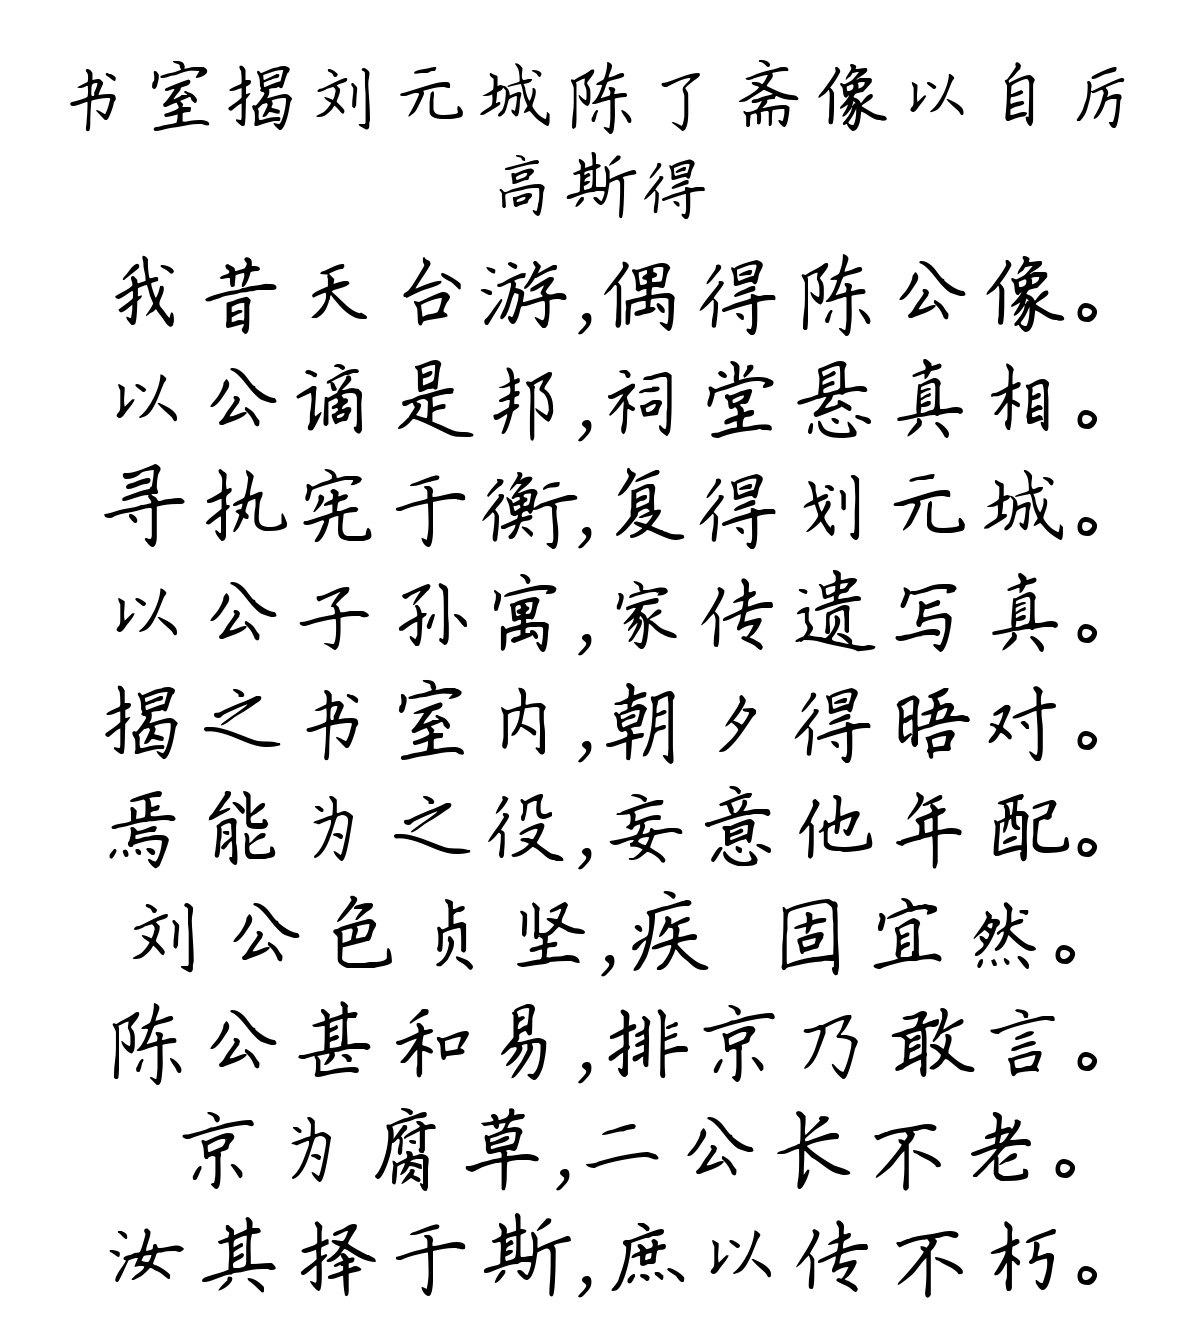 书室揭刘元城陈了斋像以自厉
高斯得
我昔天台游,偶得陈公像。
以公谪是邦,祠堂悬真相。
寻执宪于衡,复得划元城。
以公子孙寓,家传遗写真。
揭之书室内,朝夕得晤对。
焉能为之役,妄意他年配。
刘公色贞坚,疾 固宜然。
陈公甚和易,排京乃敢言。
京为腐草,二公长不老。
汝其择于斯,庶以传不朽。